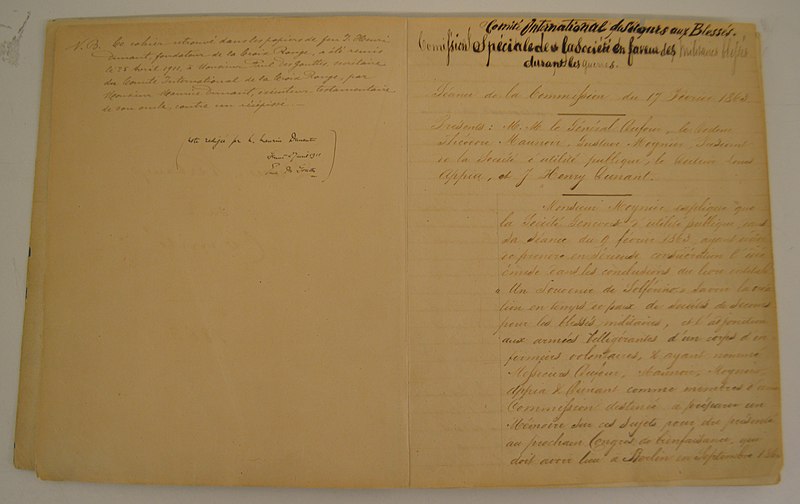 N.B. Ce cahier retrouvé dans les papiers de feu J. Henri
Dunant, fondateur de la Croix Rouge, a été remis
le 28 Avril 1911, à Monsieur Paul Des Gouttes, secrétaire
du Comité International de la Croix Rouge, par
Monsieur Maurice Dunant, exécuteur testamentaire
de son oncle, contre un récépissé.
(note rédigée par M. Maurice Dunant
1911
Comité International de Secours aux Blessés.
Commission Spéciale de la Société en faveur des militaires blessés
durant les guerres.
Séance de la Commission du 17 Février 1863.
Présents: M.M. le Général Dufour, le Docteur
Théodore Maunoir, Gustave Moynier, Président
de la Société d'utilité publique, le Docteur Louis
Appia, et J. Henry Dunant.
Monsieur Moynier explique que
la Société Genevoise d'utilité publique, dans
sa séance du 9 février 1863, ayant décidé
de prendre en sérieuse considération l'idée
émise dans les conclusions du livre intitulé
"Un Souvenir de Solférino", savoir la créa
tion en temps de paix de sociétés de secours
pour les blessés militaires, et l'adjonction
aux armées belligérantes d'un corps d'in
firmiers volontaires, & ayant nommé
Messieurs Dufour, Maunoir, Moynier,
Appia & Dunant comme membres d'une
Commission destinée à préparer un
Mémoire sur ces sujets pour être présenté
au prochain Congrès de bienfaisance, qui
doit avoir lieu à Berlin en Septembre 1863